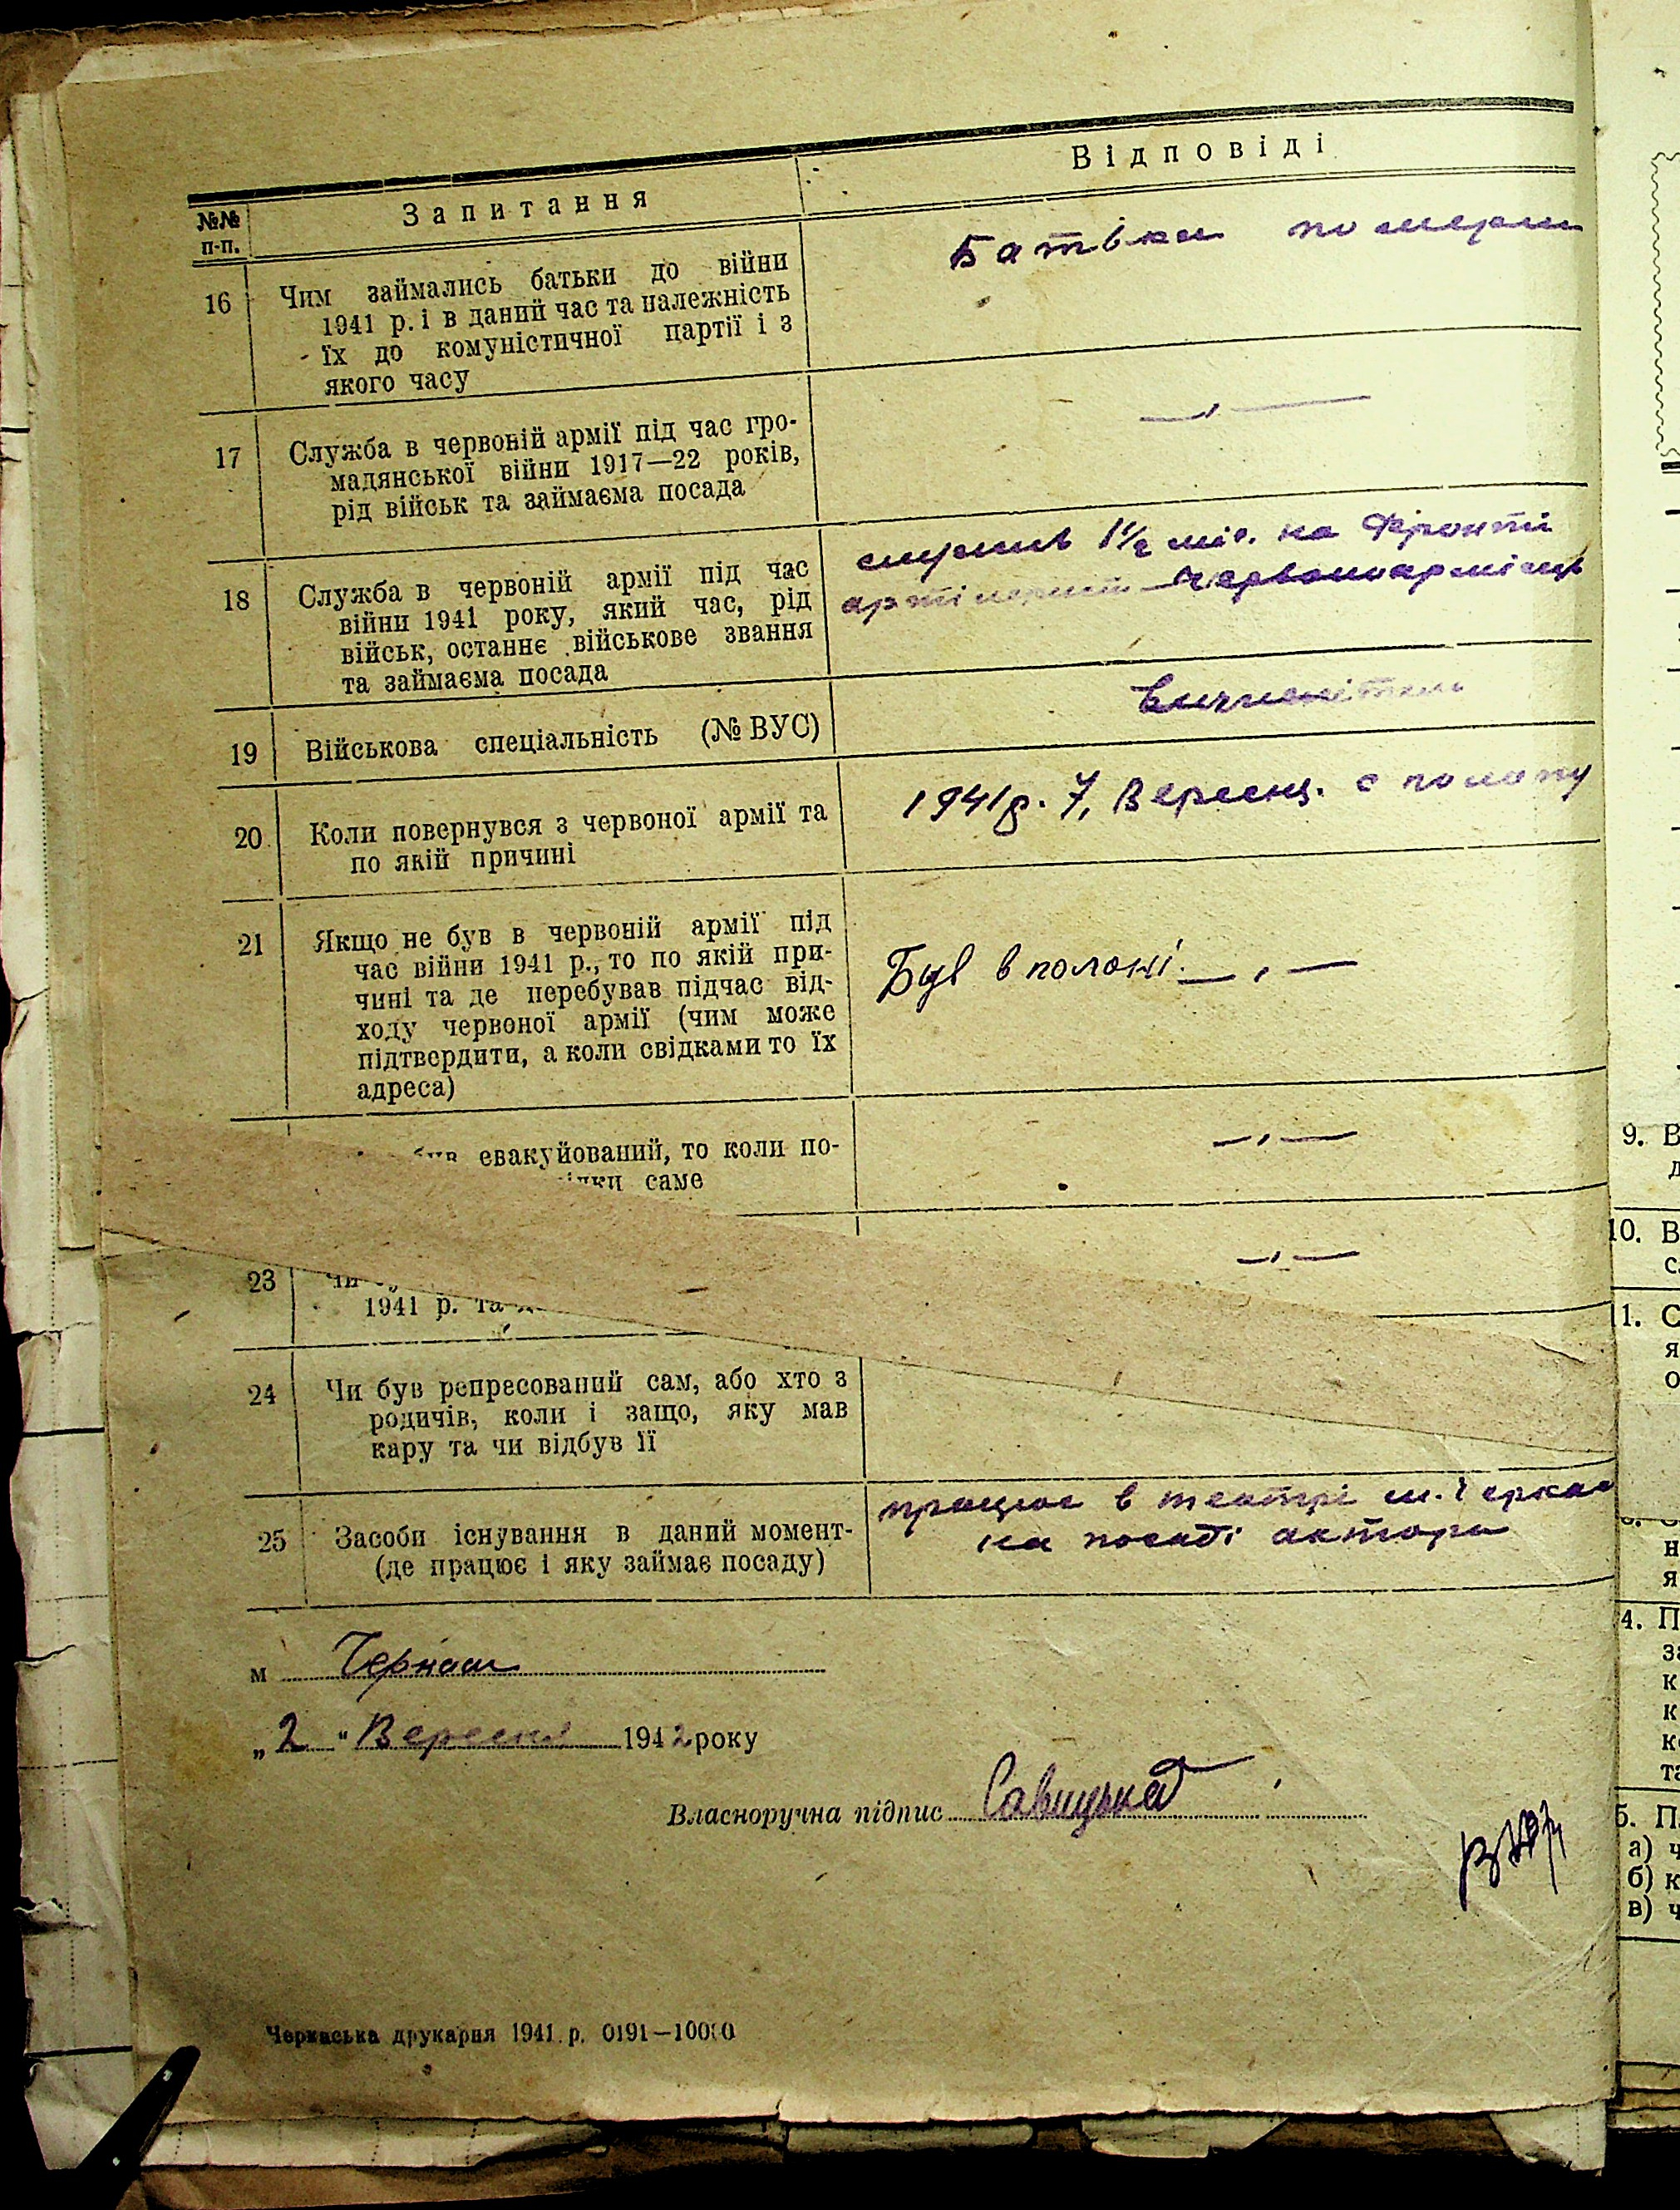 №№ п-п.
Запитання
Відповіді
16 Чим займались батьки до війни
1941 р. і в даний час та належність
їх до комуністичної партії і з
якого часу
Батьки померли
17 Служба в червоній армії під час гро-
мадянської війни 1917—22 років,
рід військ та займаєма посада
— „ —
18 Служба в червоній армії під час
війни 1941 року, який час, рід
військ, останнє військове звання
та займаєма посада
служив 1½ міс. на Фронті
Червоноармієць
19 Військова спеціальність (№ ВУС)
20 Коли повернувся з червоної армії та
по якій причині
1941 р. 7, Вересн. с полону
21 Якщо не був в червоній армії під
час війни 1941 р., то по якій при-
чині та де перебував підчас від-
ходу червоної армії (чим може
підтвердити, а коли свідками то їх
адреса)
Був в полоні. — „ —
був евакуйований, то коли по-
саме
— „ —
23
1941 р. та
— „ —
24 Чи був репресований сам, або хто з
родичів, коли і защо, яку мав
кару та чи відбув її
25 Засоби існування в даний момент-
(де працює і яку займає посаду)
працює в театрі м. Черкас
на посаді актора
м Черкаси
„2" Вересня 1942 року
Власноручна підпис
Черкаська друкарня 1941 р. 0191—10000
9. В
10. В
11. С
я
о
н
я
4. П
к
к
5. П
а) ч
б) к
в) ч